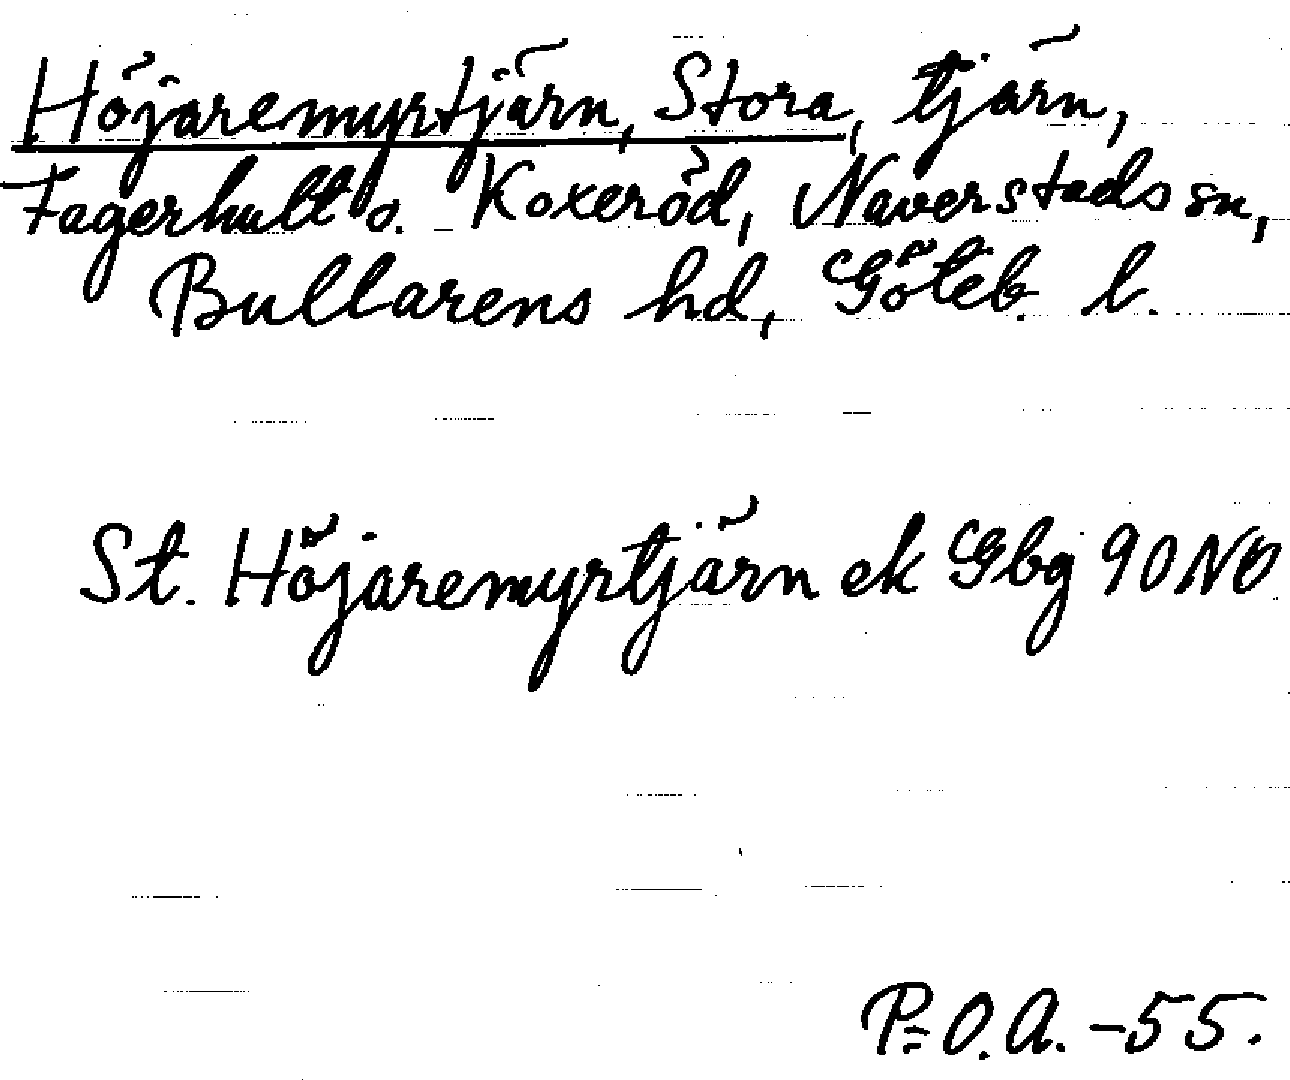 Höjaremyrtjärn, Stora, tjärn,
Fagerhult o. Koxeröd, Naverstads sn,
Bullarens hd, Göteb. l.
St. Höjaremyrtjärn ek Gbg 90 NO
P=O.A. -55.